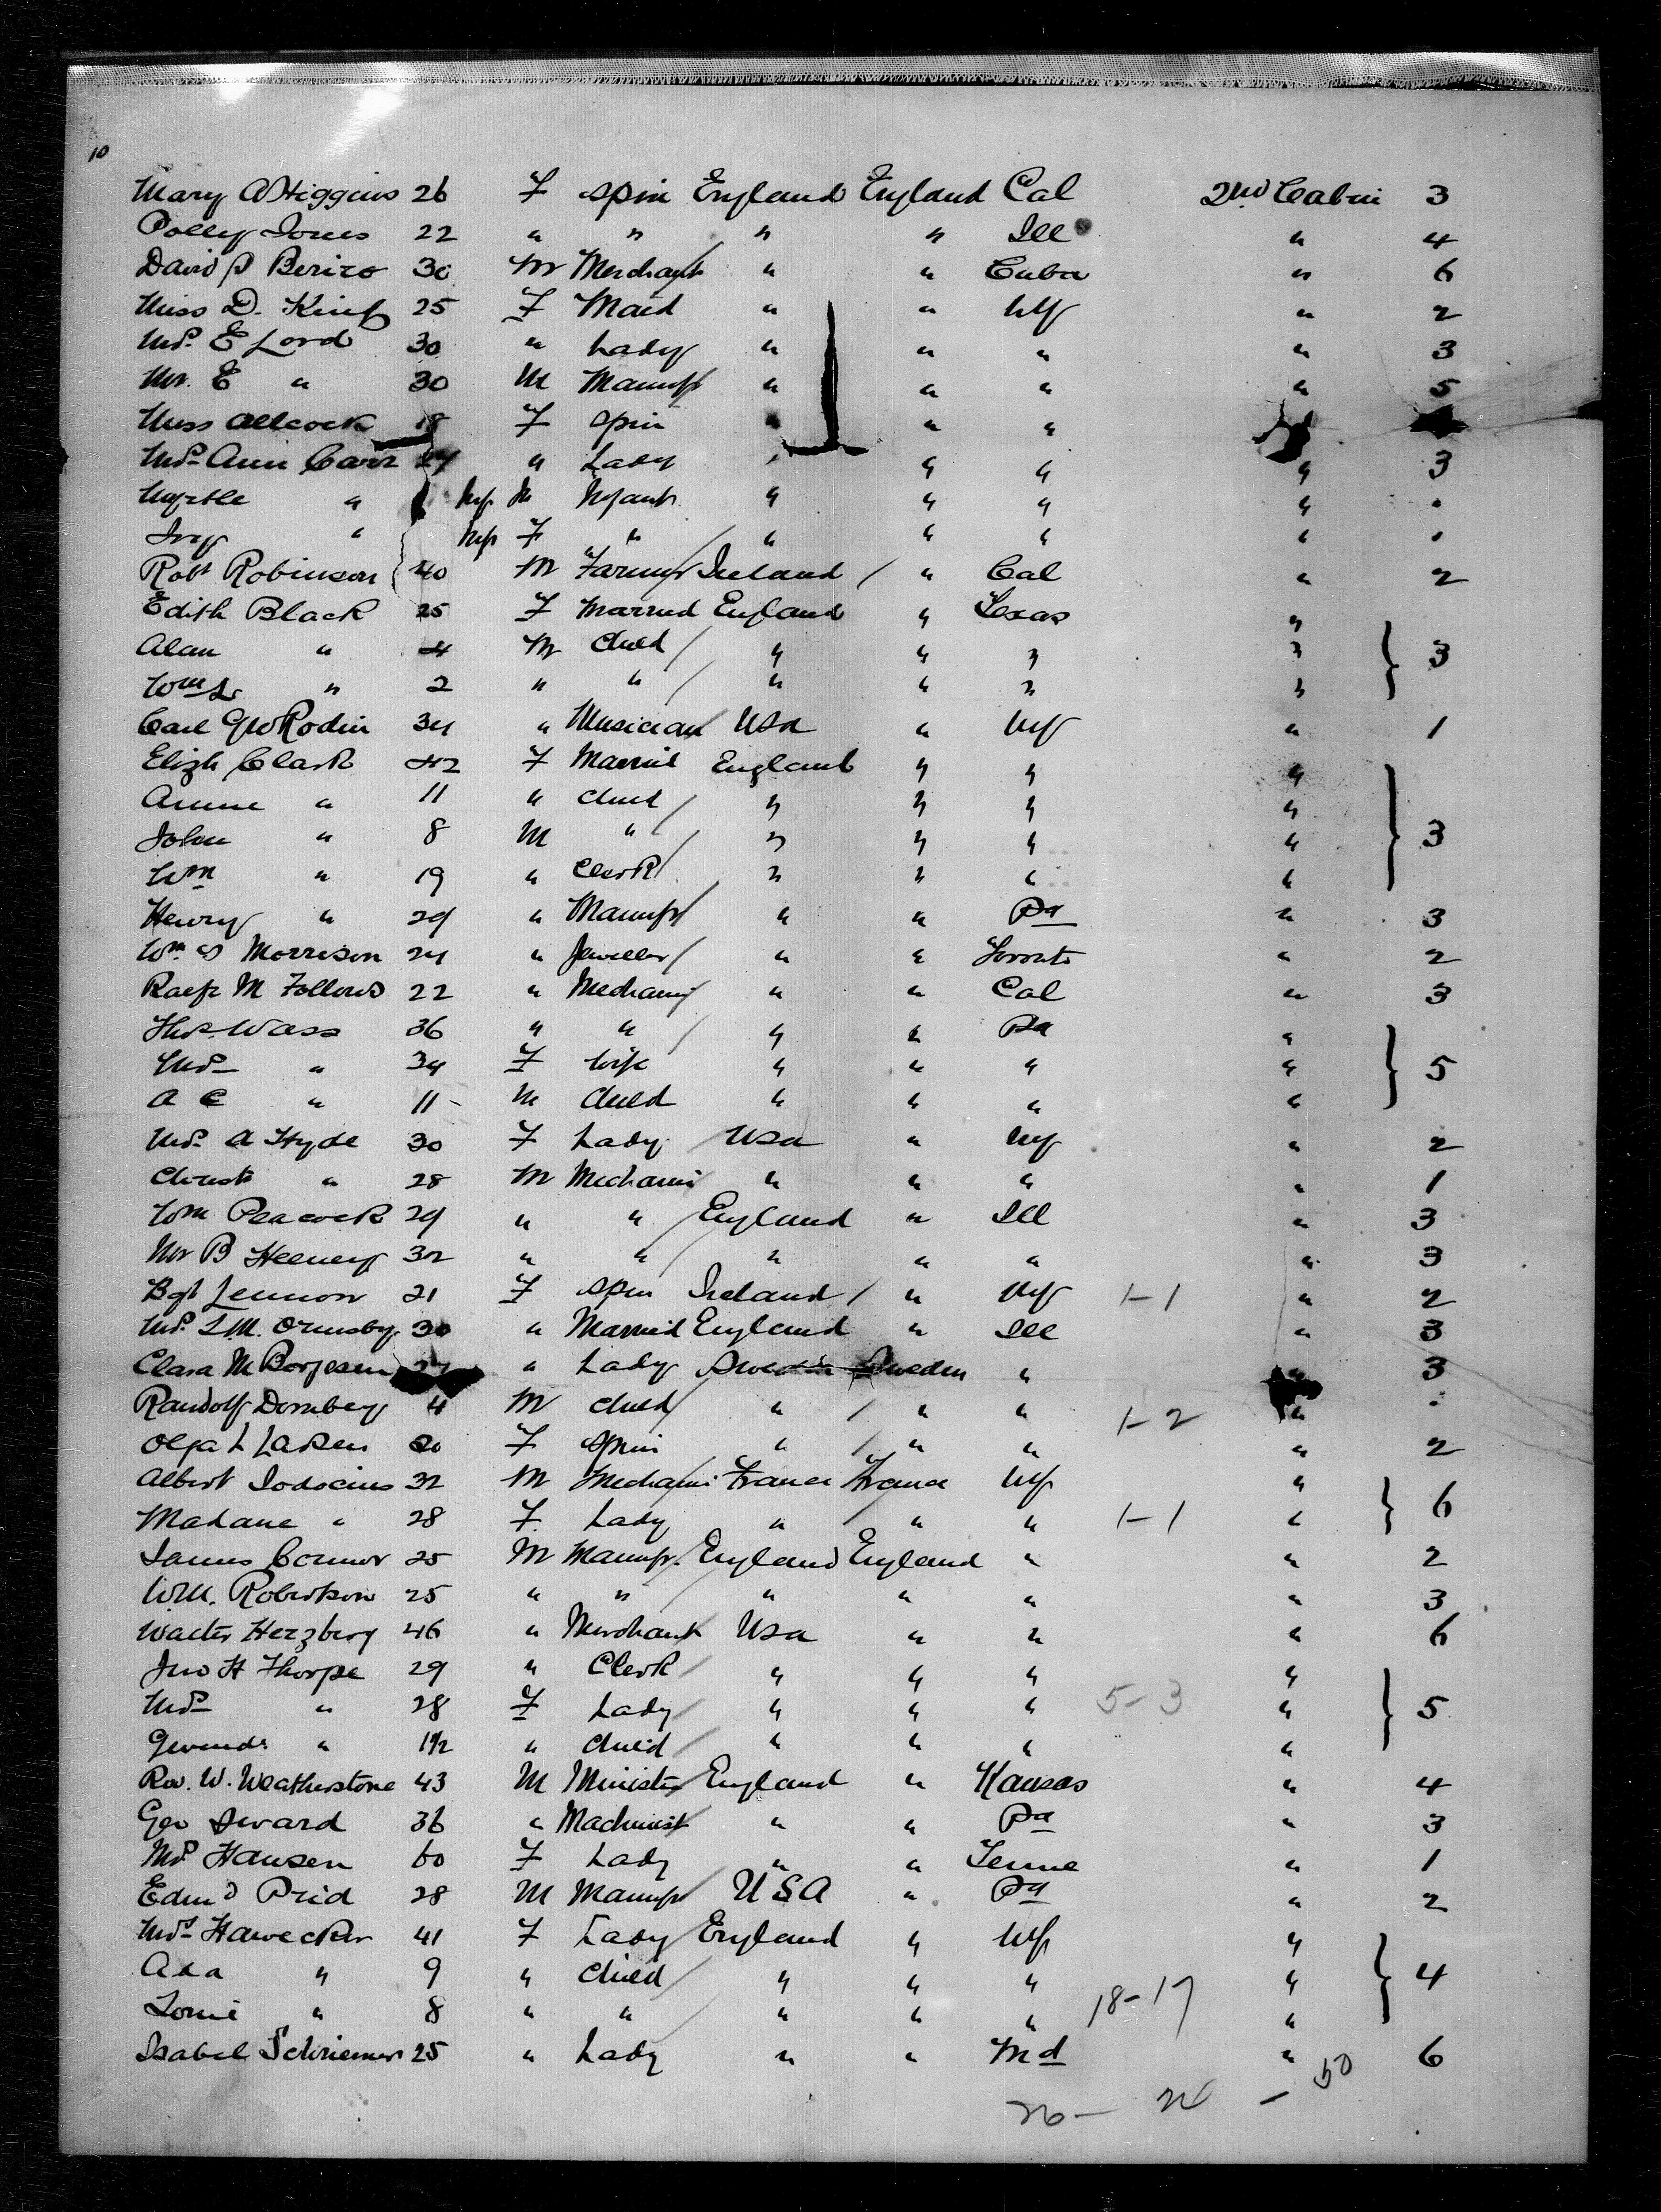 10
Mary A Higgins 26 F Spin England England Cal 2nd Cabin 3
Polly Jones 22 " " " " Ill " 4
David S Berizo 30 M Merchant " " Cuba " 6
Miss D. King 25 F Maid " " NY " 2
Mrs E Lord 30 " Lady " " " " 3
Mr. E " 30 M Manufr " " " " 5
Miss Allcock 18 F Spin " " " "
Mrs Ann Carr " Lady " " " " 3
Myrtle " Inf M Infant " " " " "
Ivy " Inf F " " " " " "
Robt Robinson 40 M Farmer Ireland " Cal " 2
Edith Black 25 F Married England " Texas "
Alan " 4 M Child " " " " 3
Wm L " 2 " " " " " "
Carl GW Rodin 34 " Musician USA " NY " 1
Elizh Clark 42 F Married England " " "
Annie " 11 " Child " " " "
John " 8 M " " " " " 3
Wm " 19 " Clerk " " " "
Henry " 29 " Manufr " " Pa " 3
Wm S Morrison 24 " Jeweller " " Toronto " 2
Ralf M Follows 22 " Mechanic " " Cal " 3
Thos Wass 36 " " " " Pa "
Mrs " 34 F Wife " " " " 5
A C " 11 M Child " " " "
Mrs A Hyde 30 F Lady USA " NY " 2
Christr " 28 M Mechanic " " " " 1
Wm Peacock 29 " " England " Ill " 3
Mr B Heeney 32 " " " " " " 3
Bgt Lennon 21 F Spin Ireland " NY 1-1 " 2
Mrs L.M. Ormsby 30 " Married England " Ill " 3
Clara M Borjesen " Lady Sweden Sweden " " 3
Randolf Dornberg 4 M Child " " " 1-2 "
Olga L Larsen 20 F Spin " " " " 2
Albert Jodocius 32 M Mechanic France France NY " 6
Madame " 28 F. Lady " " " 1-1 "
James Connor 25 M Manufr. England England " " 2
W.M. Robertson 25 " " " " " " 3
Walter Herzberg 46 " Merchant USA " " " 6
Jno H Thorpe 29 " Clerk " " " "
Mrs " 28 F Lady " " " 5-3 " 5
" 1 1/2 " Child " " " "
Rev. W. Weatherstone 43 M Minister England " Kansas " 4
Geo Sward 36 " Machinist " " Pa " 3
Mrs Hansen 60 F Lady " " Tenne " 1
Edmd Prid 28 M Manufr USA " Pa " 2
Mrs Hawecker 41 F Lady England " NY "
Ada " 9 " Child " " " " 4
" 8 " " " " " 18-17 "
Isabel Schriemer 25 " Lady " " Md " 6
26 - 24 - 50